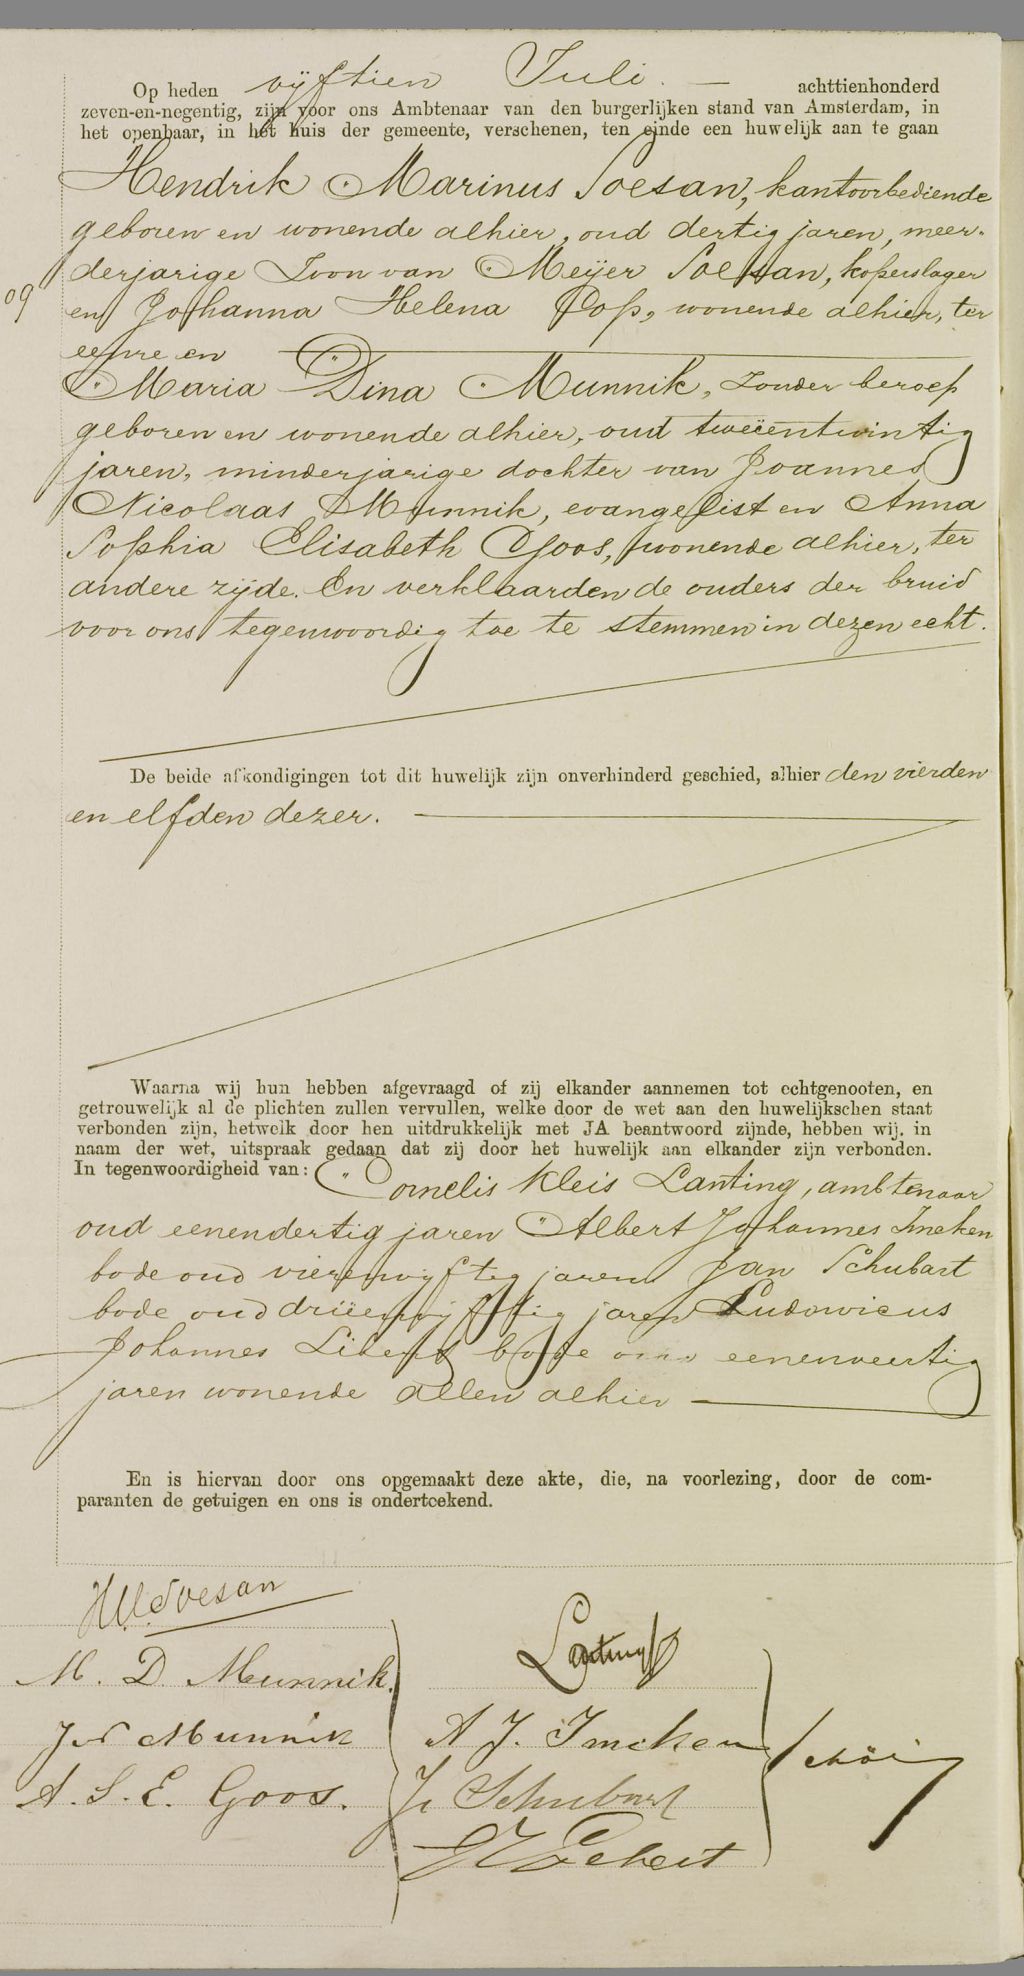 Op heden vijftien Juli. — achttienhonderd
zeven-en-negentig, zijn voor ons Ambtenaar van den burgerlijken stand van Amsterdam, in
het openbaar, in het huis der gemeente, verschenen, ten einde een huwelijk aan te gaan
Hendrik Marinus Soesan, kantoorbediende
geboren en wonende alhier, oud dertig jaren, meer-
derjarige Zoon van Meijer Soesan, koperslager
09
en Johanna Helena Pop, wonende alhier, ter
eenre en
Maria Dina Munnik, zonder beroep
geboren en wonende alhier, oud tweeëntwintig
jaren, minderjarige dochter van Joannes
Nicolaas Munnik, evangelist en Anna
Sophia Elisabeth Goos, wonende alhier, ter
andere zijde. En verklaarden de ouders der bruid
voor ons tegenwoordig toe te stemmen in dezen echt.
De beide afkondigingen tot dit huwelijk zijn onverhinderd geschied, alhier den vierden
en elfden dezer.
Waarna wij hun hebben afgevraagd of zij elkander aannemen tot echtgenooten, en
getrouwelijk al de plichten zullen vervullen, welke door de wet aan den huwelijkschen staat
verbonden zijn, hetwelk door hen uitdrukkelijk met JA beantwoord zijnde, hebben wij, in
naam der wet, uitspraak gedaan dat zij door het huwelijk aan elkander zijn verbonden.
In tegenwoordigheid van: Cornelis Kleis Lanting, ambtenaar
oud eenendertig jaren Albert Johannes Imeken
bode oud vierenvijftig jaren Jan Schubart
bode oud drieenvijftig jaren Ludowicus
Johannes bode oud eenenveertig
jaren wonende allen alhier
En is hiervan door ons opgemaakt deze akte, die, na voorlezing, door de com-
paranten de getuigen en ons is onderteekend.
HMSoesan
M. D. Munnik.
JN Munnik
A. S. E. Goos.
Lanting
A J. Imeken
J. Schubart